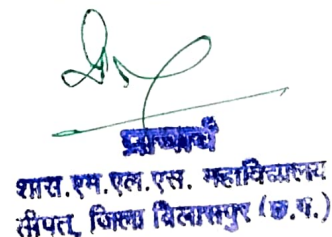 प्राचार्य
शास.एम.एल.एस. महाविद्यालय
सीपत, जिला बिलासपुर (छ.ग.)